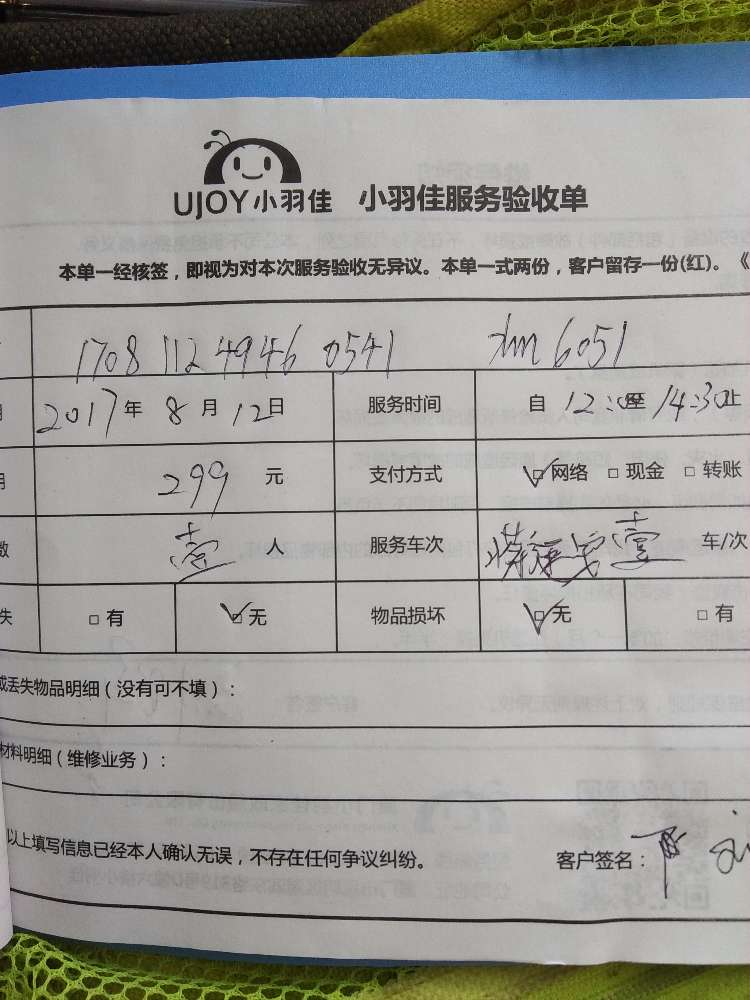 UJOY小羽佳 小羽佳服务验收单
本单一经核签，即视为对本次服务验收无异议。本单一式两份，客户留存一份(红)。《
1708 112 4946 0541 xm 6051
2017年 8月 12日 服务时间 自 12:00至 14:30止
299 元 支付方式 网络 现金 转账
壹 人 服务车次 壹 车/次
失 有 无 物品损坏 无 有
或丢失物品明细（没有可不填）：
材料明细（维修业务）：
以上填写信息已经本人确认无误，不存在任何争议纠纷。 客户签名：